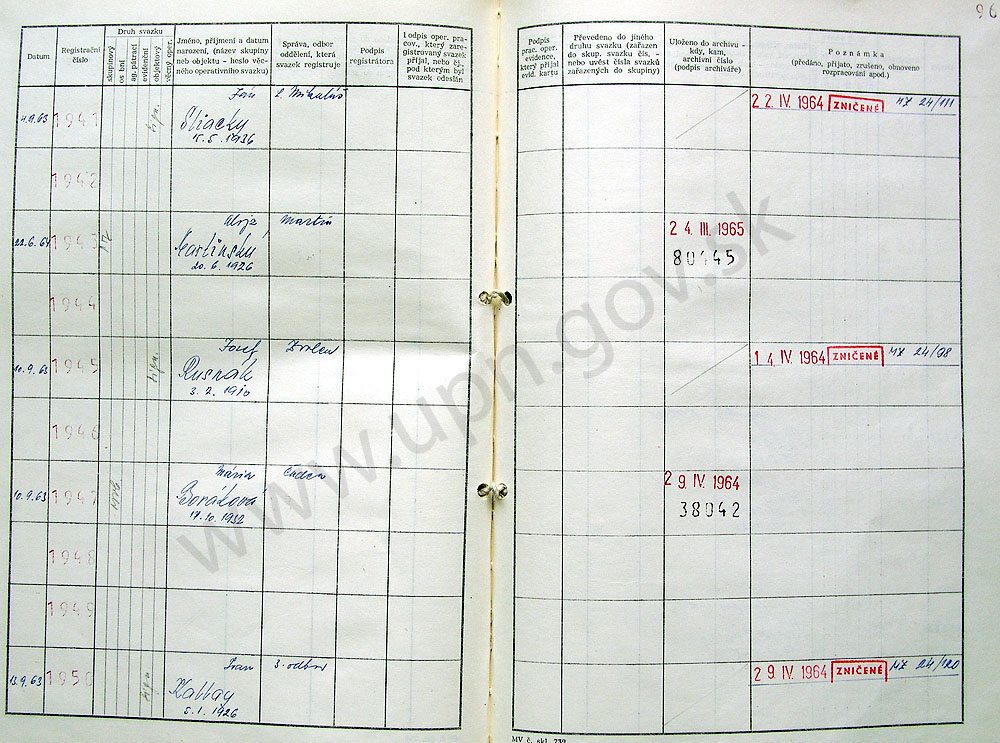 96
Datum
Registrační číslo
Druh svazku
skupinový
osobní
ag. pátrací
evidenční
objektový
věcný oper.
Jméno, příjmení a datum
narození, (název skupiny
neb objektu - heslo věc-
ného operativního svazku)
Správa, odbor
oddělení, která
svazek registruje
Podpis
registrátora
Podpis oper. pra-
cov., který zare-
gistrovaný svazek
přijal, nebo čj.,
pod kterým byl
svazek odeslán
Podpis
prac. oper.
evidence,
který přijal
evid. kartu
Převedeno do jiného
druhu svazku (zařazen
do skup. svazku čís. -
nebo uvést čísla svazků
zařazených do skupiny)
Uloženo do archivu -
kdy, kam,
archivní číslo
(podpis archiváře)
Poznámka
(předáno, přijato, zrušeno, obnoveno
rozpracování apod.)
Ján L. Mikuláš
4.9.63 1941 Sliacky
15.5.1936
22. IV. 1964 ZNIČENÉ MZ 24/111
1942
Alojz Martin
22.6.64 1943 Martinský
20.6.1926
24. III. 1965
80445
1944
Jozef Zvolen
10.9.63 1945 Rusnák
3.2.1910
14. IV. 1964 ZNIČENÉ MZ 24/98
1946
Mária Čadca
10.9.63 1947
17.10.1932
29. IV. 1964
38042
1948
1949
Ivan 3. odbor
13.9.63 1950 Kallay
5.1.1926
29. IV. 1964 ZNIČENÉ MZ 24/120
MV č. skl. 732
www.upn.gov.sk